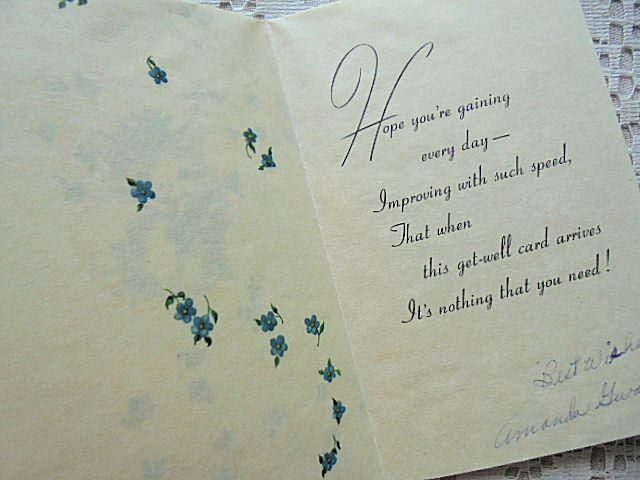 Hope you're gaining
every day—
Improving with such speed,
That when
this get-well card arrives
It's nothing that you need!
"Best Wishes
Amanda